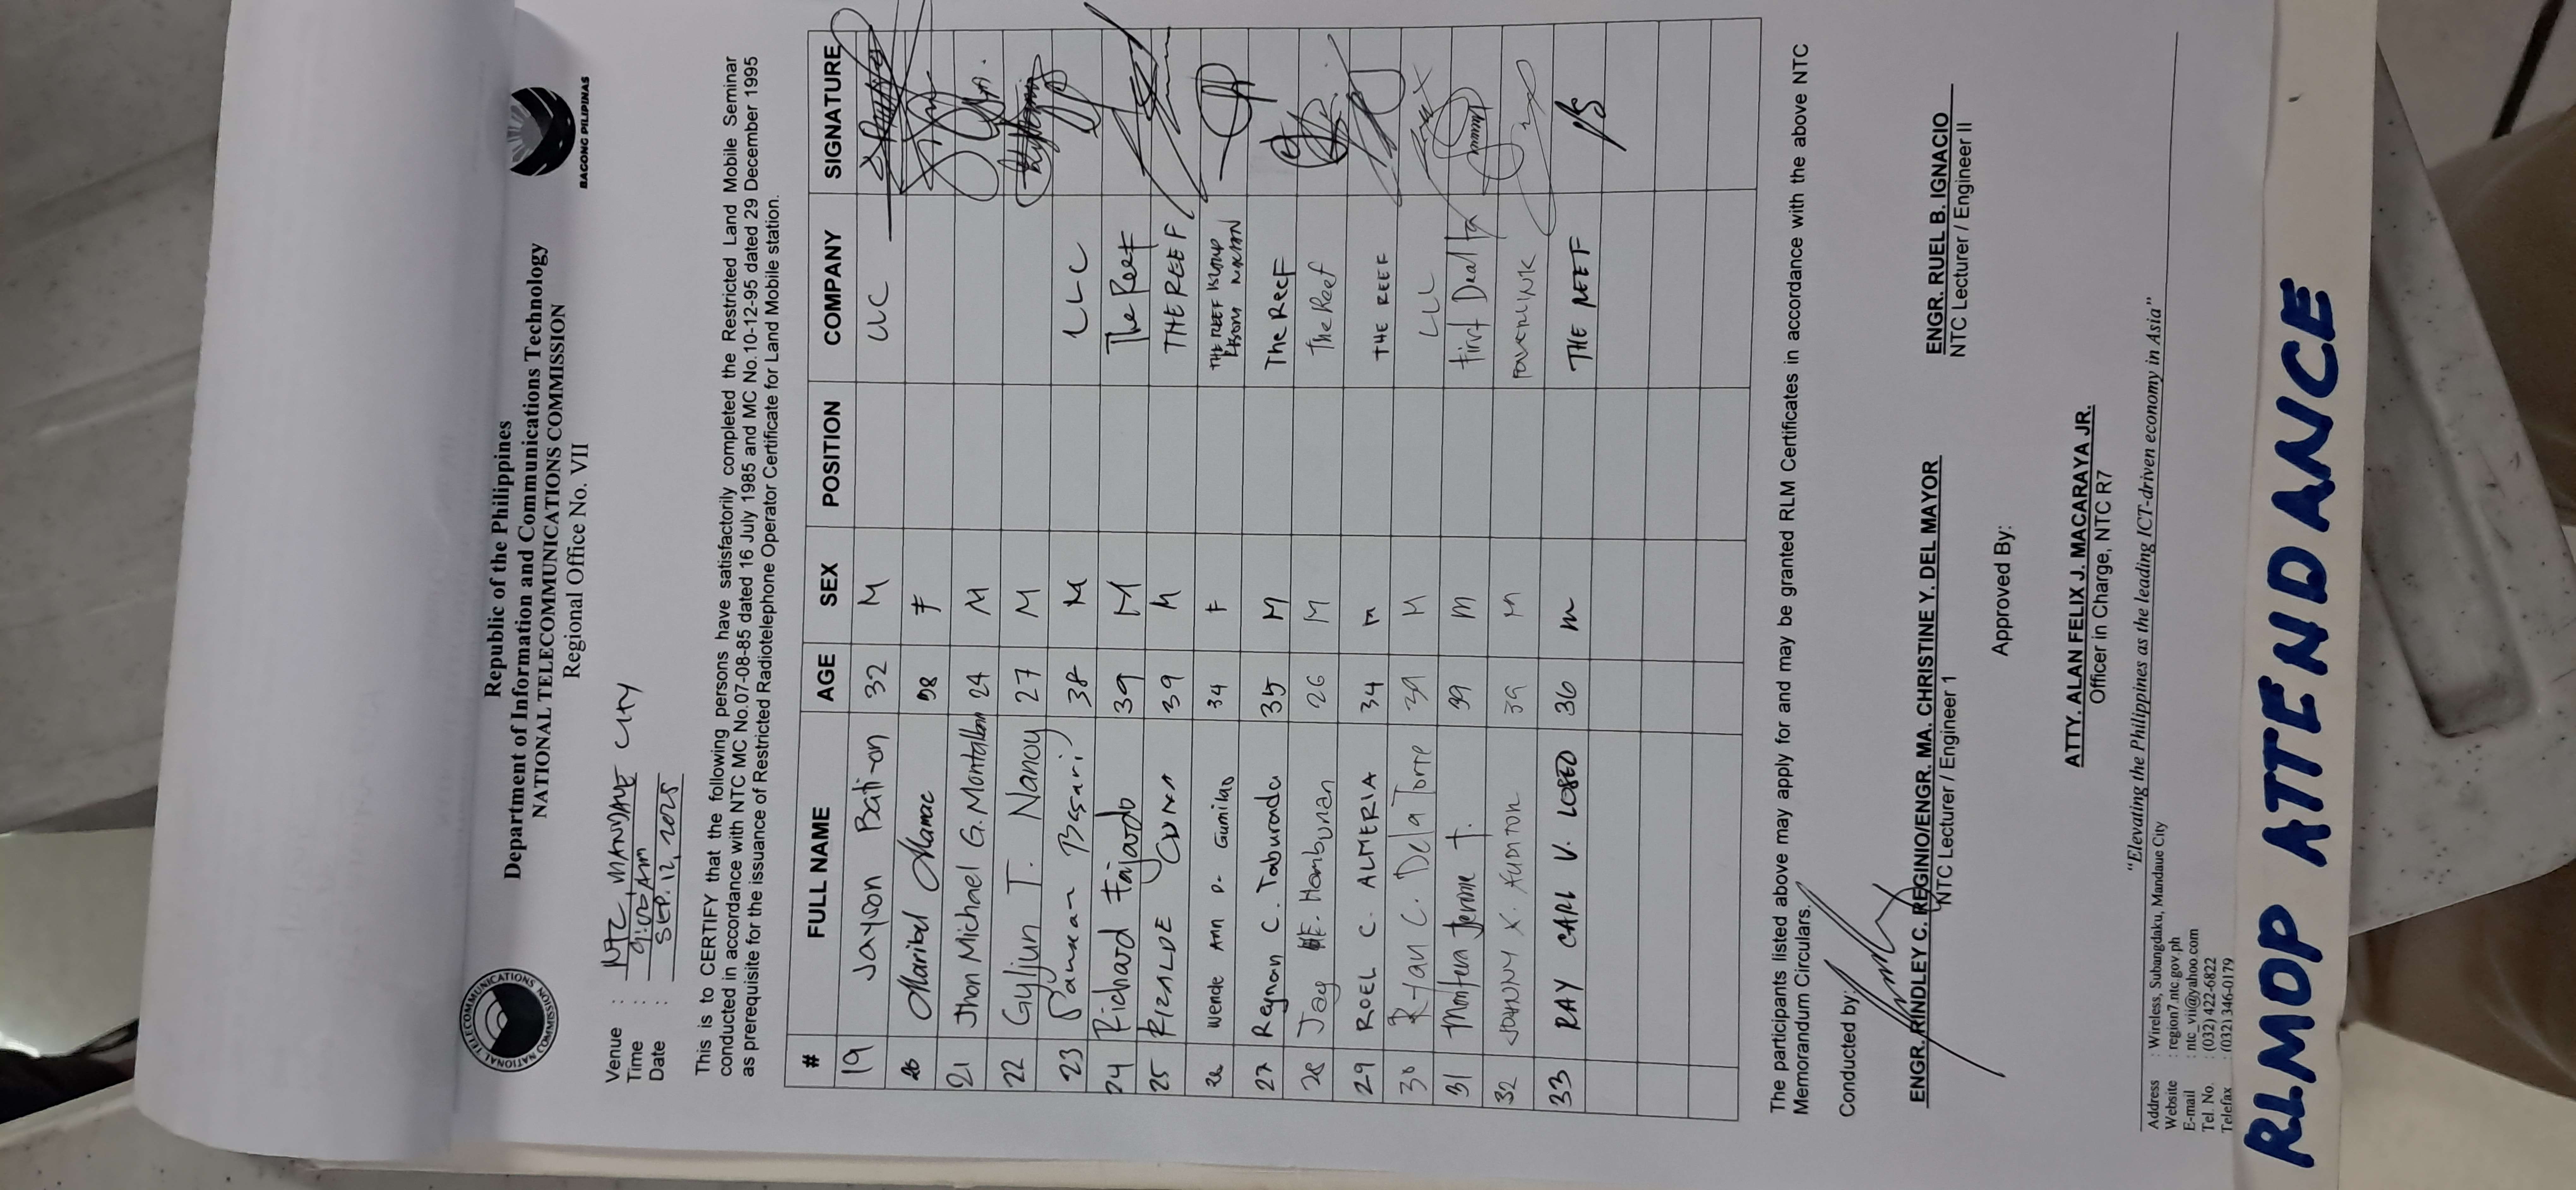 Republic of the Philippines
Department of Information and Communications Technology
NATIONAL TELECOMMUNICATIONS COMMISSION
Regional Office No. VII
NATIONAL TELECOMMUNICATIONS COMMISSION
BAGONG PILIPINAS
Venue : NTC, MANDAUE CITY
Time : 9:00 AM
Date : SEP. 12, 2025
This is to CERTIFY that the following persons have satisfactorily completed the Restricted Land Mobile Seminar
conducted in accordance with NTC MC No.07-08-85 dated 16 July 1985 and MC No.10-12-95 dated 29 December 1995
as prerequisite for the issuance of Restricted Radiotelephone Operator Certificate for Land Mobile station.
# FULL NAME AGE SEX POSITION COMPANY SIGNATURE
19 Jayson Bati-on 32 M
20 Maribel Mamac 58 F
21 Jhon Michael G. Montalban 24 M
22 Gyljun T. Nanoy 27 M
23 38 M LLC
24 Richard Fajardo 39 M The Reef
25 RIZALDE 39 M THE REEF
26 Wende Ann D. Gumilao 34 F THE REEF ISLAND
27 Reynan C. Taburonda 35 M The Reef
28 Jay Hambunan 26 M The Reef
29 ROEL C. ALMERIA 34 M THE REEF
30 Ryan C. Dela Torre 39 M
31 39 M First Deal
32 JOHNNY 39 M POWERLINK
33 RAY CARL V. 36 M THE REEF
The participants listed above may apply for and may be granted RLM Certificates in accordance with the above NTC
Memorandum Circulars.
Conducted by:
ENGR. RINDLEY C. REGINIO/ENGR. MA. CHRISTINE Y. DEL MAYOR
NTC Lecturer / Engineer 1
ENGR. RUEL B. IGNACIO
NTC Lecturer / Engineer II
Approved By:
ATTY. ALAN FELIX J. MACARAYA JR.
Officer in Charge, NTC R7
"Elevating the Philippines as the leading ICT-driven economy in Asia"
Address : Wireless, Subangdaku, Mandaue City
Website : region7.ntc.gov.ph
E-mail : ntc_vii@yahoo.com
Tel. No. : (032) 422-6822
Telefax : (032) 346-0179
RLMOP ATTENDANCE